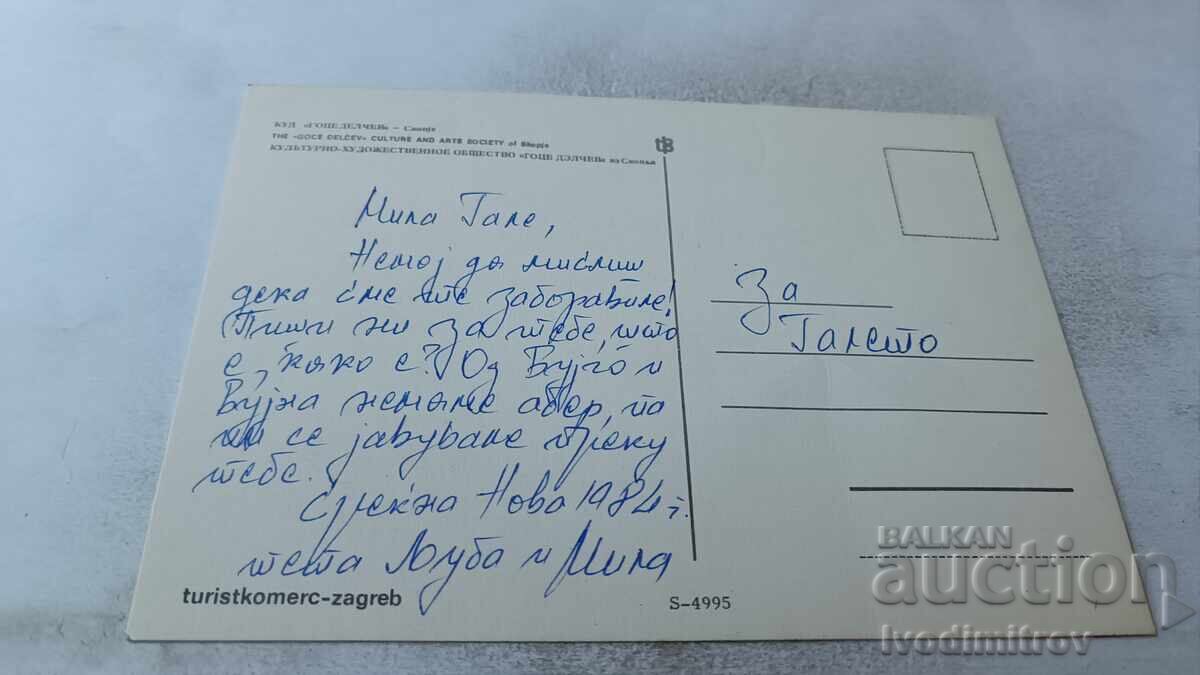 КУД «ГОЦЕ ДЕЛЧЕВ» – Скопје
THE «GOCE DELČEV» CULTURE AND ARTS SOCIETY of Skopje
КУЛЬТУРНО-ХУДОЖЕСТВЕННОЕ ОБЩЕСТВО «ГОЦЕ ДЭЛЧЕВ» из Скопья
Мила Гале,
Немој да мислиш
дека сме те заборавиле!
Пиши ни за тебе, што
е, како е? Од Вујчо и
Вујна немаме абер, па
ти се јавуваме преку
тебе.
Среќна Нова 1984 г.
тета Љуба и Мила
За
Галето
turistkomerc-zagreb
S-4995
BALKAN
auction
Ivodimitrov